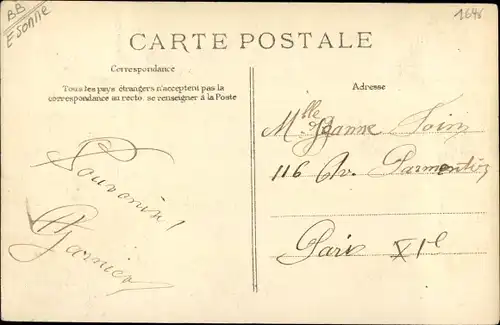 BB
Esonne
1648
CARTE POSTALE
Correspondance
Tous les pays étrangers n'acceptent pas la
correspondance au recto. se renseigner à la Poste
Souvenirs !
Garnier
Adresse
Mlle Jeanne Loin
116 Av. Parmentier
Paris XIe